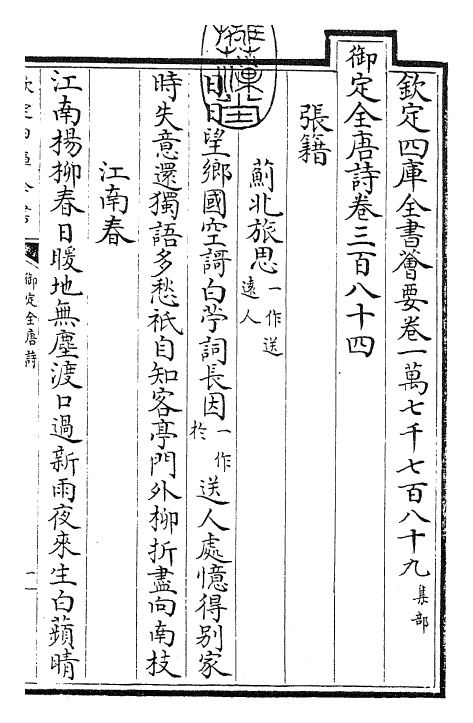 欽定四庫全書薈要卷一萬七千七百八十九集部
御定全唐詩卷三百八十四
張籍
薊北旅思一作送遠人
日日望鄉國空謌白苧詞長因一作於送人處憶得别家
時失意還獨語多愁祇自知客亭門外柳折盡向南枝
江南春
江南楊柳春日暖地無塵渡口過新雨夜來生白蘋晴
御定全唐詩
一